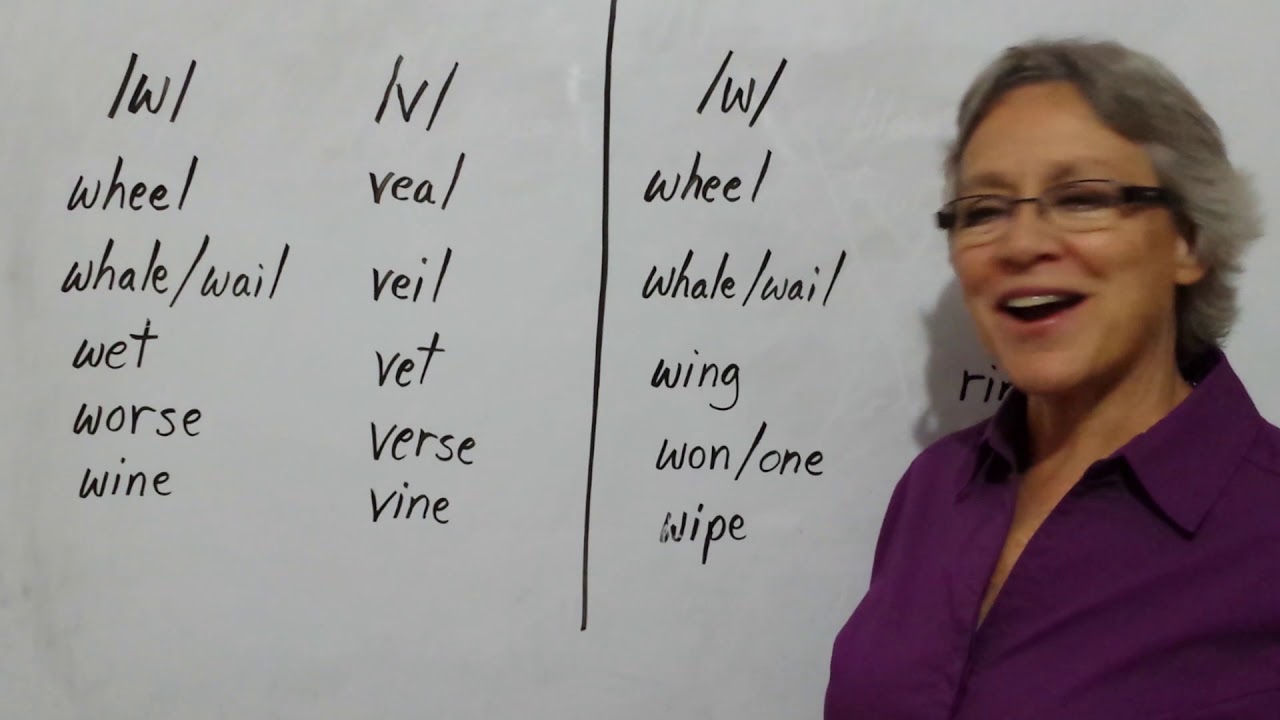 /w/ /v/ /w/
wheel veal wheel
whale/wail veil whale/wail
wet vet wing
worse verse won/one
wine vine wipe